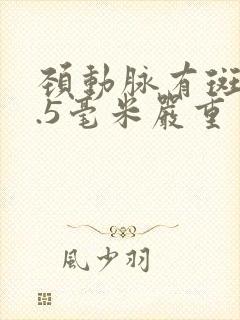 頚動脉有斑
.5毫米嚴重
風少羽